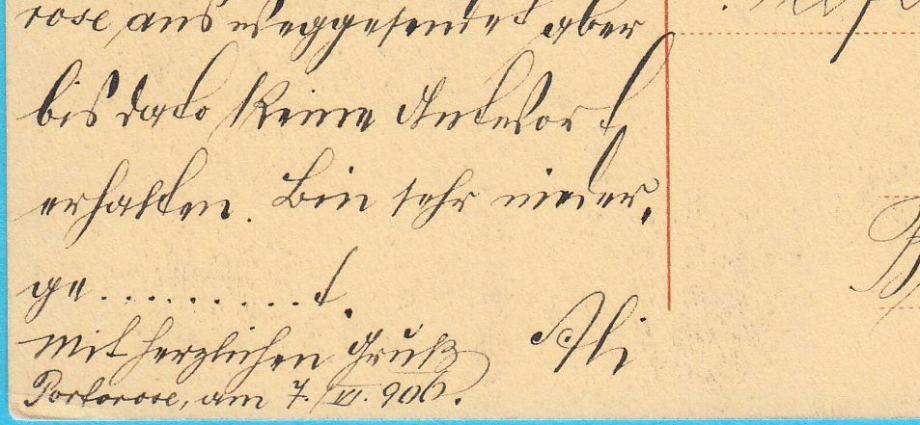 rose aus weggesendet aber
bis dato keine Antwort
erhalten. Bin sehr nieder,
ge..........t.
Mit herzlichen Gruß
Portorose, am 7. VI. 906.